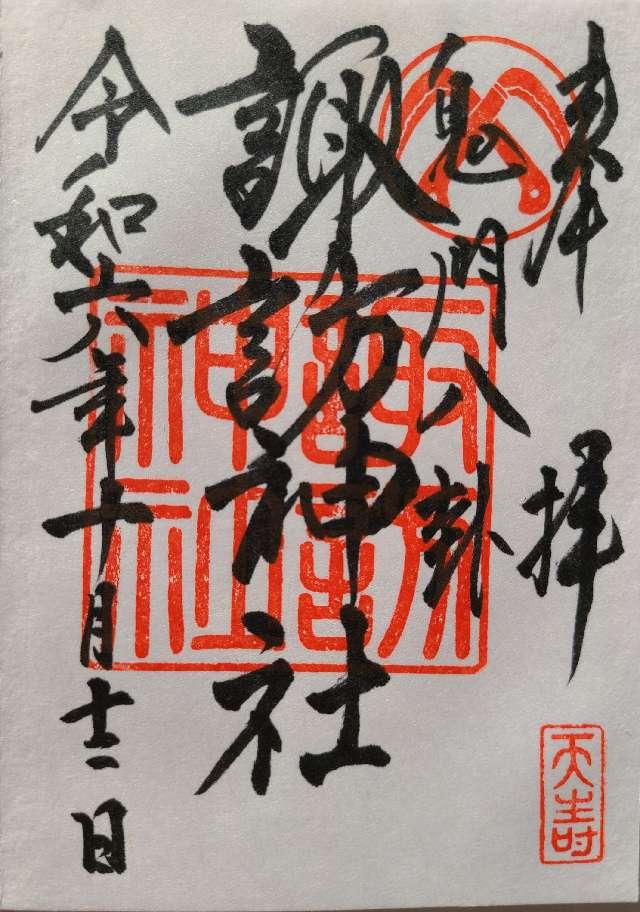 奉拝
鬼門八卦
諏訪神社
令和六年十月十二日
諏訪神社
天寿